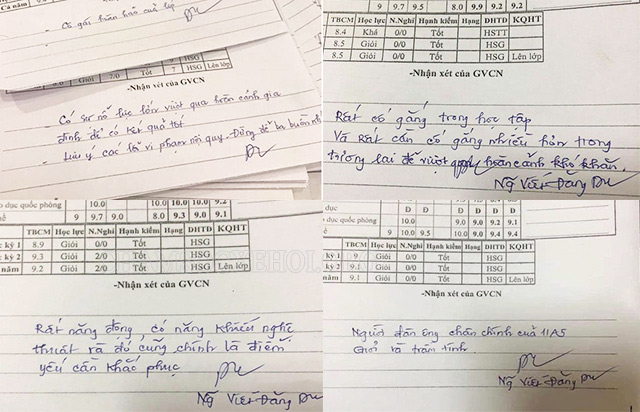 Cả năm
- Cô gái hoàn hảo của lớp
9 9.7 9.5 8.0 9.9 9.2 9.2
Giỏi 7.0 Tốt 7 HSG Lên lớp
-Nhận xét của GVCN
Có sự nỗ lực lớn vượt qua hoàn cảnh gia
đình để có kết quả tốt
- Lưu ý các lỗi vi phạm nội quy. Đừng để ba buồn
TBCM Học lực N.Nghỉ Hạnh kiểm Hạng DHTĐ KQHT
8.4 Khá 0/0 Tốt HSTT
8.5 Giỏi 0/0 Tốt HSG
8.5 Giỏi 0/0 Tốt HSG Lên lớp
-Nhận xét của GVCN
Rất cố gắng trong học tập
Và rất cần cố gắng nhiều hơn trong
tương lai để vượt qua hoàn cảnh khó khăn.
Ng Viết Đăng Du
o dục quốc phòng 10.0 10.0 10.0 9.2
9 9.7 9.0 8.0 9.3 9.0 9.1
TBCM Học lực N.Nghỉ Hạnh kiểm Hạng DHTĐ KQHT
c kỳ 1 8.9 Giỏi 0/0 Tốt HSG
kỳ 2 9.3 Giỏi 2/0 Tốt HSG
năm 9.2 Giỏi 2/0 Tốt HSG Lên lớp
-Nhận xét của GVCN
Rất năng động, có năng khiếu nghệ
thuật và đó cũng chính là điểm
yếu cần khắc phục
Ng Viết Đăng Du
dục Đ Đ Đ Đ
dục quốc phòng 10.0 9.0 10.0 9.1
9 10.0 9.5 10.0 9.0 9.4 9.4
TBCM Học lực N.Nghỉ Hạnh kiểm Hạng DHTĐ KQHT
kỳ 1 9. Giỏi 0/0 Tốt HSG
kỳ 2 9.1 Giỏi 0/0 Tốt HSG
năm 9.1 Giỏi 0/0 Tốt HSG Lên lớp
-Nhận xét của GVCN
Người đàn ông chân chính của 11A5
Giỏi và trầm tính
Ng Viết Đăng Du